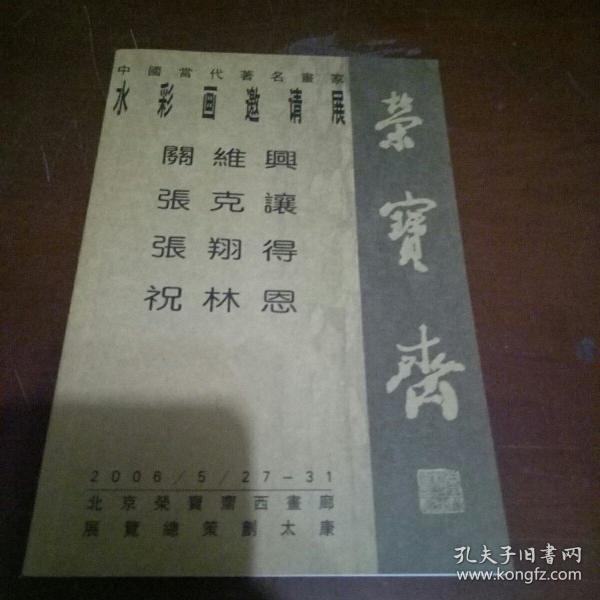 中國當代著名畫家
水彩画邀请展
關維興
張克讓
張翔得
祝林恩
2006/5/27-31
北京榮寶齋西畫廊
展覽總策劃太康
榮寶齋
孔夫子旧书网
www.kongfz.com